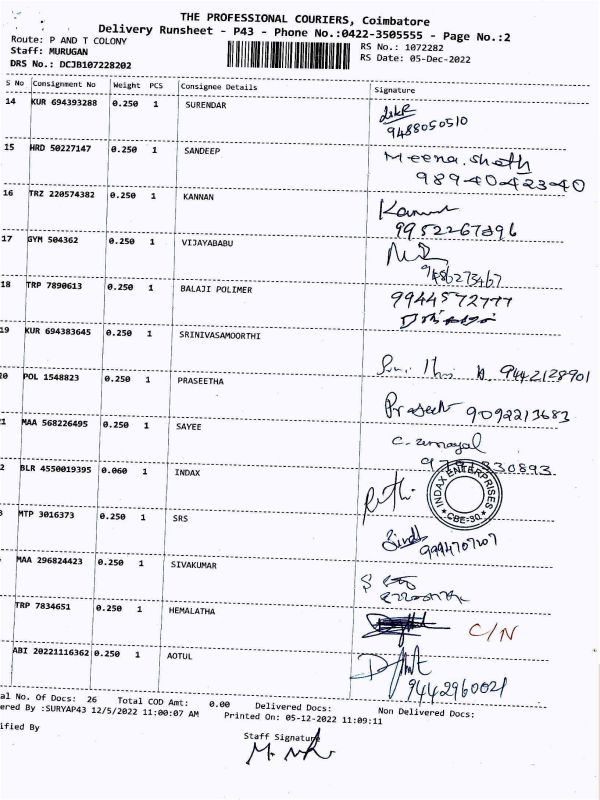 THE PROFESSIONAL COURIERS, Coimbatore
Delivery Runsheet - P43 - Phone No.:0422-3505555 - Page No.:2
Route: P AND T COLONY
Staff: MURUGAN
DRS No.: DCJB107228202
RS No.: 1072282
RS Date: 05-Dec-2022
S No Consignment No Weight PCS Consignee Details Signature
14 KUR 694393288 0.250 1 SURENDAR
9488050510
15 HRD 50227147 0.250 1 SANDEEP Meena. Sheth
9894042340
16 TRZ 220574382 0.250 1 KANNAN
9952267896
17 GYM 504362 0.250 1 VIJAYABABU
9486273467
18 TRP 7890613 0.250 1 BALAJI POLIMER 9944572777
19 KUR 694383645 0.250 1 SRINIVASAMOORTHI
9442128901
POL 1548823 0.250 1 PRASEETHA
Praseeth 9092213683
MAA 568226495 0.250 1 SAYEE
BLR 4550019395 0.060 1 INDAX
INDAX ENTERPRISES
CBE-30
MTP 3016373 0.250 1 SRS
MAA 296824423 0.250 1 SIVAKUMAR
TRP 7834651 0.250 1 HEMALATHA
C/N
ABI 20221116362 0.250 1 AOTUL
9442960021
al No. Of Docs: 26 Total COD Amt: 0.00 Delivered Docs: Non Delivered Docs:
ered By :SURYAP43 12/5/2022 11:00:07 AM Printed On: 05-12-2022 11:09:11
ified By
Staff Signature